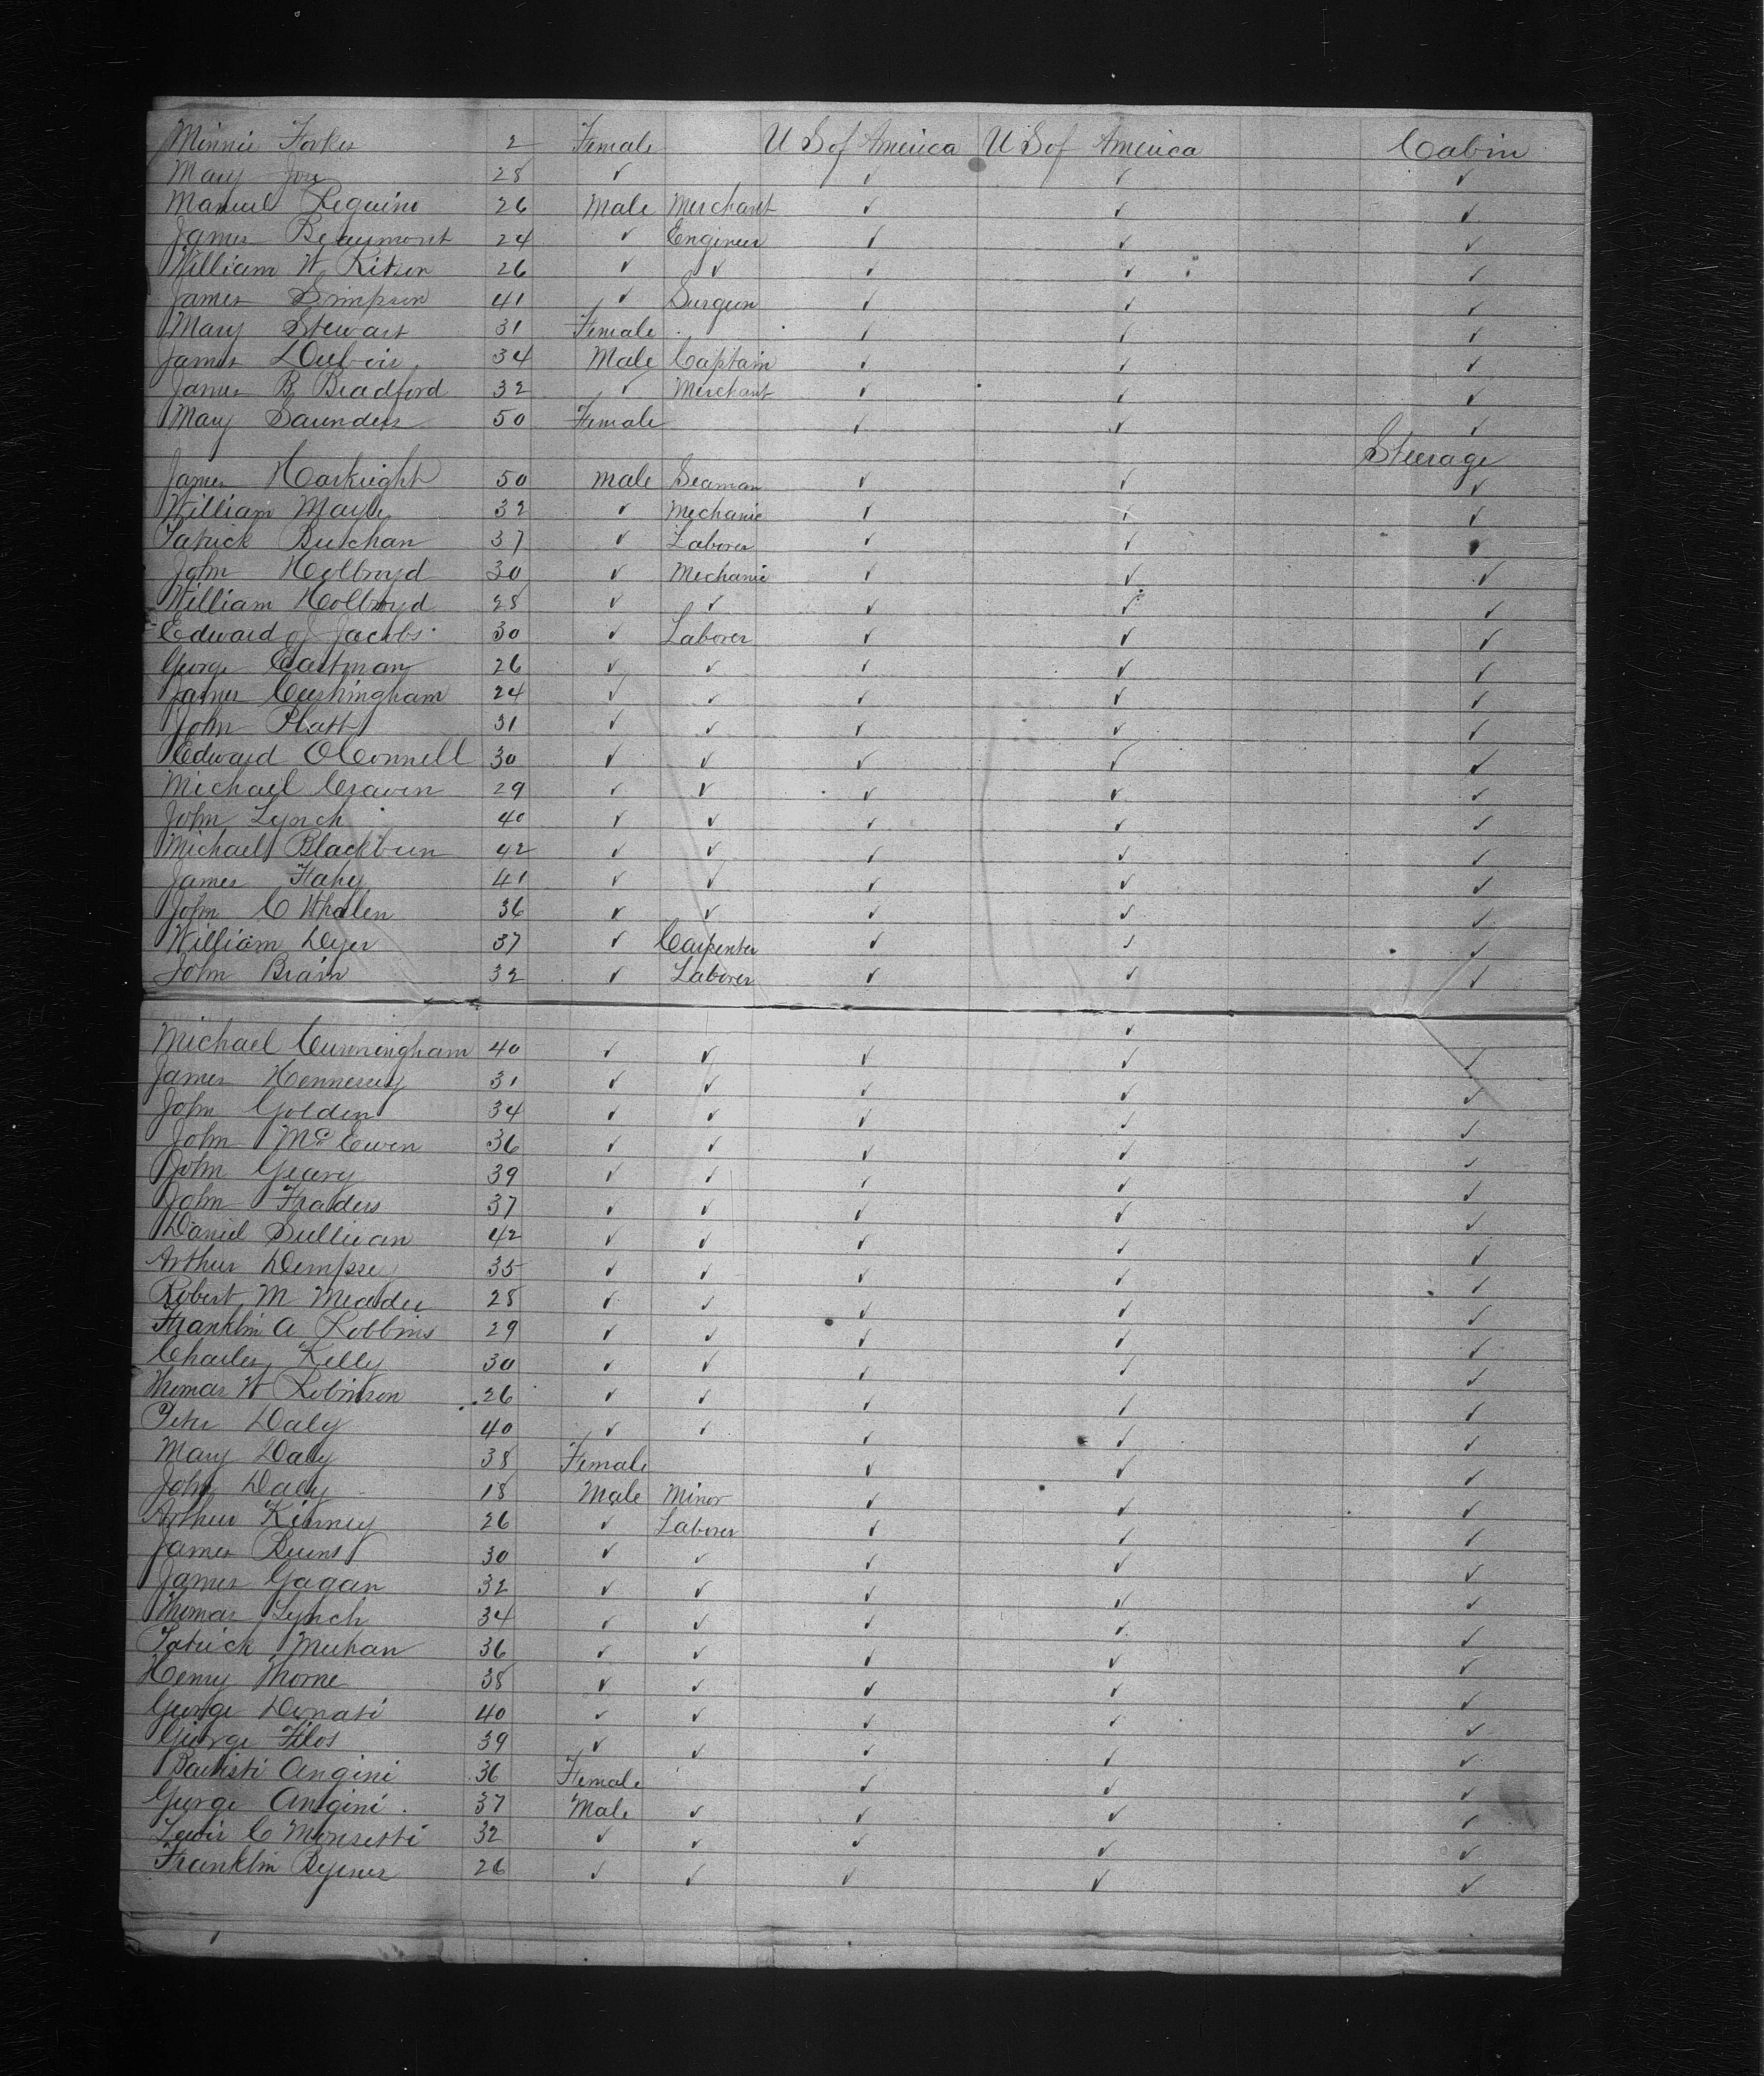 Minnie Forkes 2 Female U S of America U S of America Cabin
Mary Joy 28 ✓ ✓ ✓ ✓
Manuel Leguino 26 Male Merchant ✓ ✓ ✓
James Beaumont 24 ✓ Engineer ✓ ✓ ✓
William W Kitson 26 ✓ ✓ ✓ ✓ ✓
James Simpson 41 ✓ Surgeon ✓ ✓ ✓
Mary Stewart 31 Female ✓ ✓ ✓
James Dubois 34 Male Captain ✓ ✓ ✓
James B Bradford 32 ✓ Merchant ✓ ✓ ✓
Mary Saunders 50 Female ✓ ✓ ✓
Steerage
James Harkright 50 Male Seaman ✓ ✓ ✓
William Mayle 32 ✓ Mechanic ✓ ✓ ✓
Patrick Buckhan 37 ✓ Laborer ✓ ✓ ✓
John Holbroyd 30 ✓ Mechanic ✓ ✓ ✓
William Holbroyd 28 ✓ ✓ ✓ ✓ ✓
Edward J Jacobs 30 ✓ Laborer ✓ ✓ ✓
George Eastman 26 ✓ ✓ ✓ ✓ ✓
James Cushingham 24 ✓ ✓ ✓ ✓ ✓
John Platt 31 ✓ ✓ ✓ ✓ ✓
Edward OConnell 30 ✓ ✓ ✓ ✓ ✓
Michael Craven 29 ✓ ✓ ✓ ✓ ✓
John Lynch 40 ✓ ✓ ✓ ✓ ✓
Michael Blackburn 42 ✓ ✓ ✓ ✓ ✓
James Fahy 41 ✓ ✓ ✓ ✓ ✓
John C Whalen 36 ✓ ✓ ✓ ✓ ✓
William Dyer 37 ✓ Carpenter ✓ ✓ ✓
John Brain 32 ✓ Laborer ✓ ✓ ✓
Michael Cunningham 40 ✓ ✓ ✓ ✓ ✓
James Hennessy 31 ✓ ✓ ✓ ✓ ✓
John Golden 34 ✓ ✓ ✓ ✓ ✓
John McEwen 36 ✓ ✓ ✓ ✓ ✓
John Geary 39 ✓ ✓ ✓ ✓ ✓
John Fraders 37 ✓ ✓ ✓ ✓ ✓
Daniel Sullivan 42 ✓ ✓ ✓ ✓ ✓
Arthur Dempsey 35 ✓ ✓ ✓ ✓ ✓
Robert M Meader 28 ✓ ✓ ✓ ✓ ✓
Franklin A Robbins 29 ✓ ✓ ✓ ✓ ✓
Charles Kelly 30 ✓ ✓ ✓ ✓ ✓
Thomas W Robinson 26 ✓ ✓ ✓ ✓ ✓
Peter Daly 40 ✓ ✓ ✓ ✓ ✓
Mary Daly 38 Female ✓ ✓ ✓
John Daly 18 Male Minor ✓ ✓ ✓
Arthur Kinney 26 ✓ Laborer ✓ ✓ ✓
James Burns 30 ✓ ✓ ✓ ✓ ✓
James Gagan 32 ✓ ✓ ✓ ✓ ✓
Thomas Lynch 34 ✓ ✓ ✓ ✓ ✓
Patrick Meehan 36 ✓ ✓ ✓ ✓ ✓
Henry Thorne 38 ✓ ✓ ✓ ✓ ✓
George Donati 40 ✓ ✓ ✓ ✓ ✓
George Filos 39 ✓ ✓ ✓ ✓ ✓
Batisti Angini 36 Female ✓ ✓ ✓
George Angini 37 Male ✓ ✓ ✓ ✓
Lewis C Monsetti 32 ✓ ✓ ✓ ✓ ✓
Franklin 26 ✓ ✓ ✓ ✓ ✓